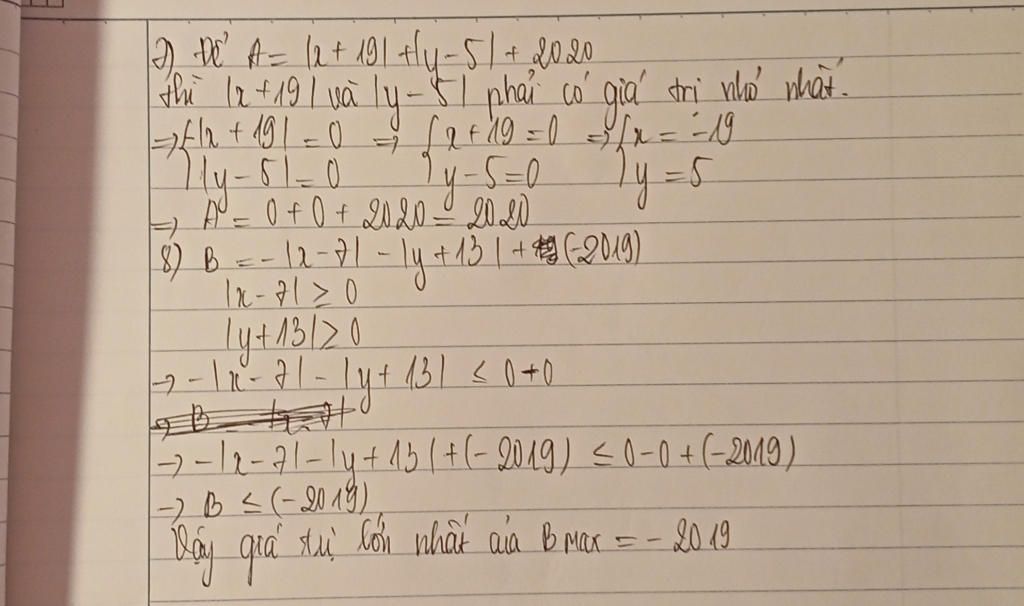 7) Để A = |x + 19| + |y - 5| + 2020
thì |x + 19| và |y - 5| phải có giá trị nhỏ nhất.
=> { |x + 19| = 0 => { x + 19 = 0 => { x = -19
|y - 5| = 0 y - 5 = 0 y = 5
=> A = 0 + 0 + 2020 = 2020
8) B = - |x - 7| - |y + 13| + (-2019)
|x - 7| ≥ 0
|y + 13| ≥ 0
-> - |x - 7| - |y + 13| ≤ 0 + 0
-> - |x - 7| - |y + 13| + (- 2019) ≤ 0 - 0 + (-2019)
-> B ≤ (-2019)
Vậy giá trị lớn nhất của B Max = - 2019